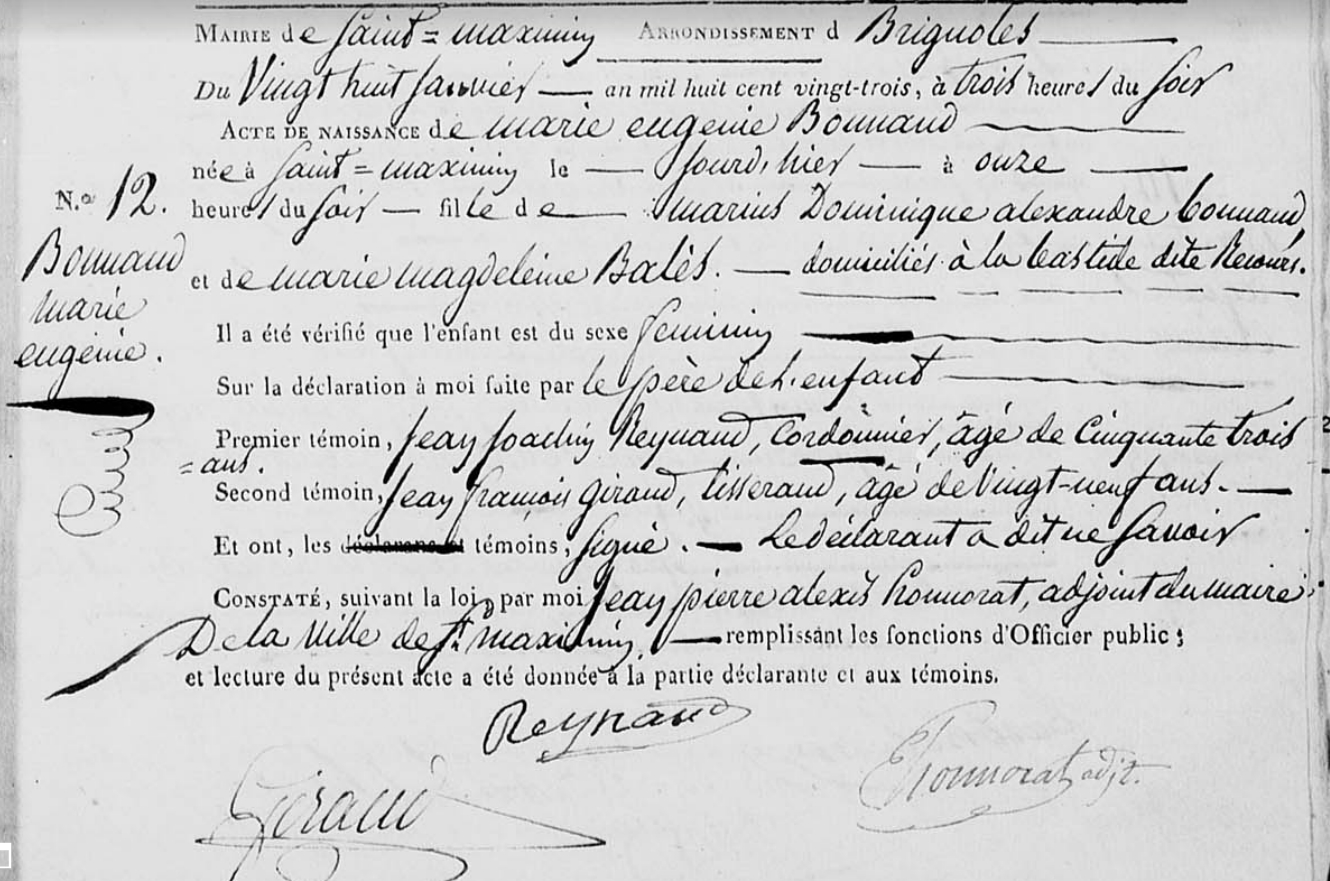 Mairie de Saint=maximin Arrondissement d Brignoles
Du Vingt huit janvier an mil huit cent vingt-trois, à trois heures du soir
Acte de naissance de marie eugenie Bonnaud
née à Saint=maximin le jourd,hier à onze
N.º 12. heures du soir fille de marius Dominique alexandre bonnaud,
Bonnaud
marie
eugénie.
et de marie magdeleine Balés. domiciliés à la bastide dite Recours.
Il a été vérifié que l'enfant est du sexe feminin
Sur la déclaration à moi faite par le père de l'enfant
Premier témoin, jean joachin Reynaud, Cordonnier, âgé de Cinquante trois
=ans.
Second témoin, jean françois giraud, tisserand, âgé de vingt-neuf ans.
Et ont, les témoins, signé. Le déclarant a dit ne savoir
Constaté, suivant la loi, par moi jean pierre alexis honnorat, adjoint du maire
De la Ville de st. maximin, remplissant les fonctions d'Officier public ;
et lecture du présent acte a été donnée à la partie déclarante et aux témoins.
Reynaud
Honnorat adjt.
Giraud